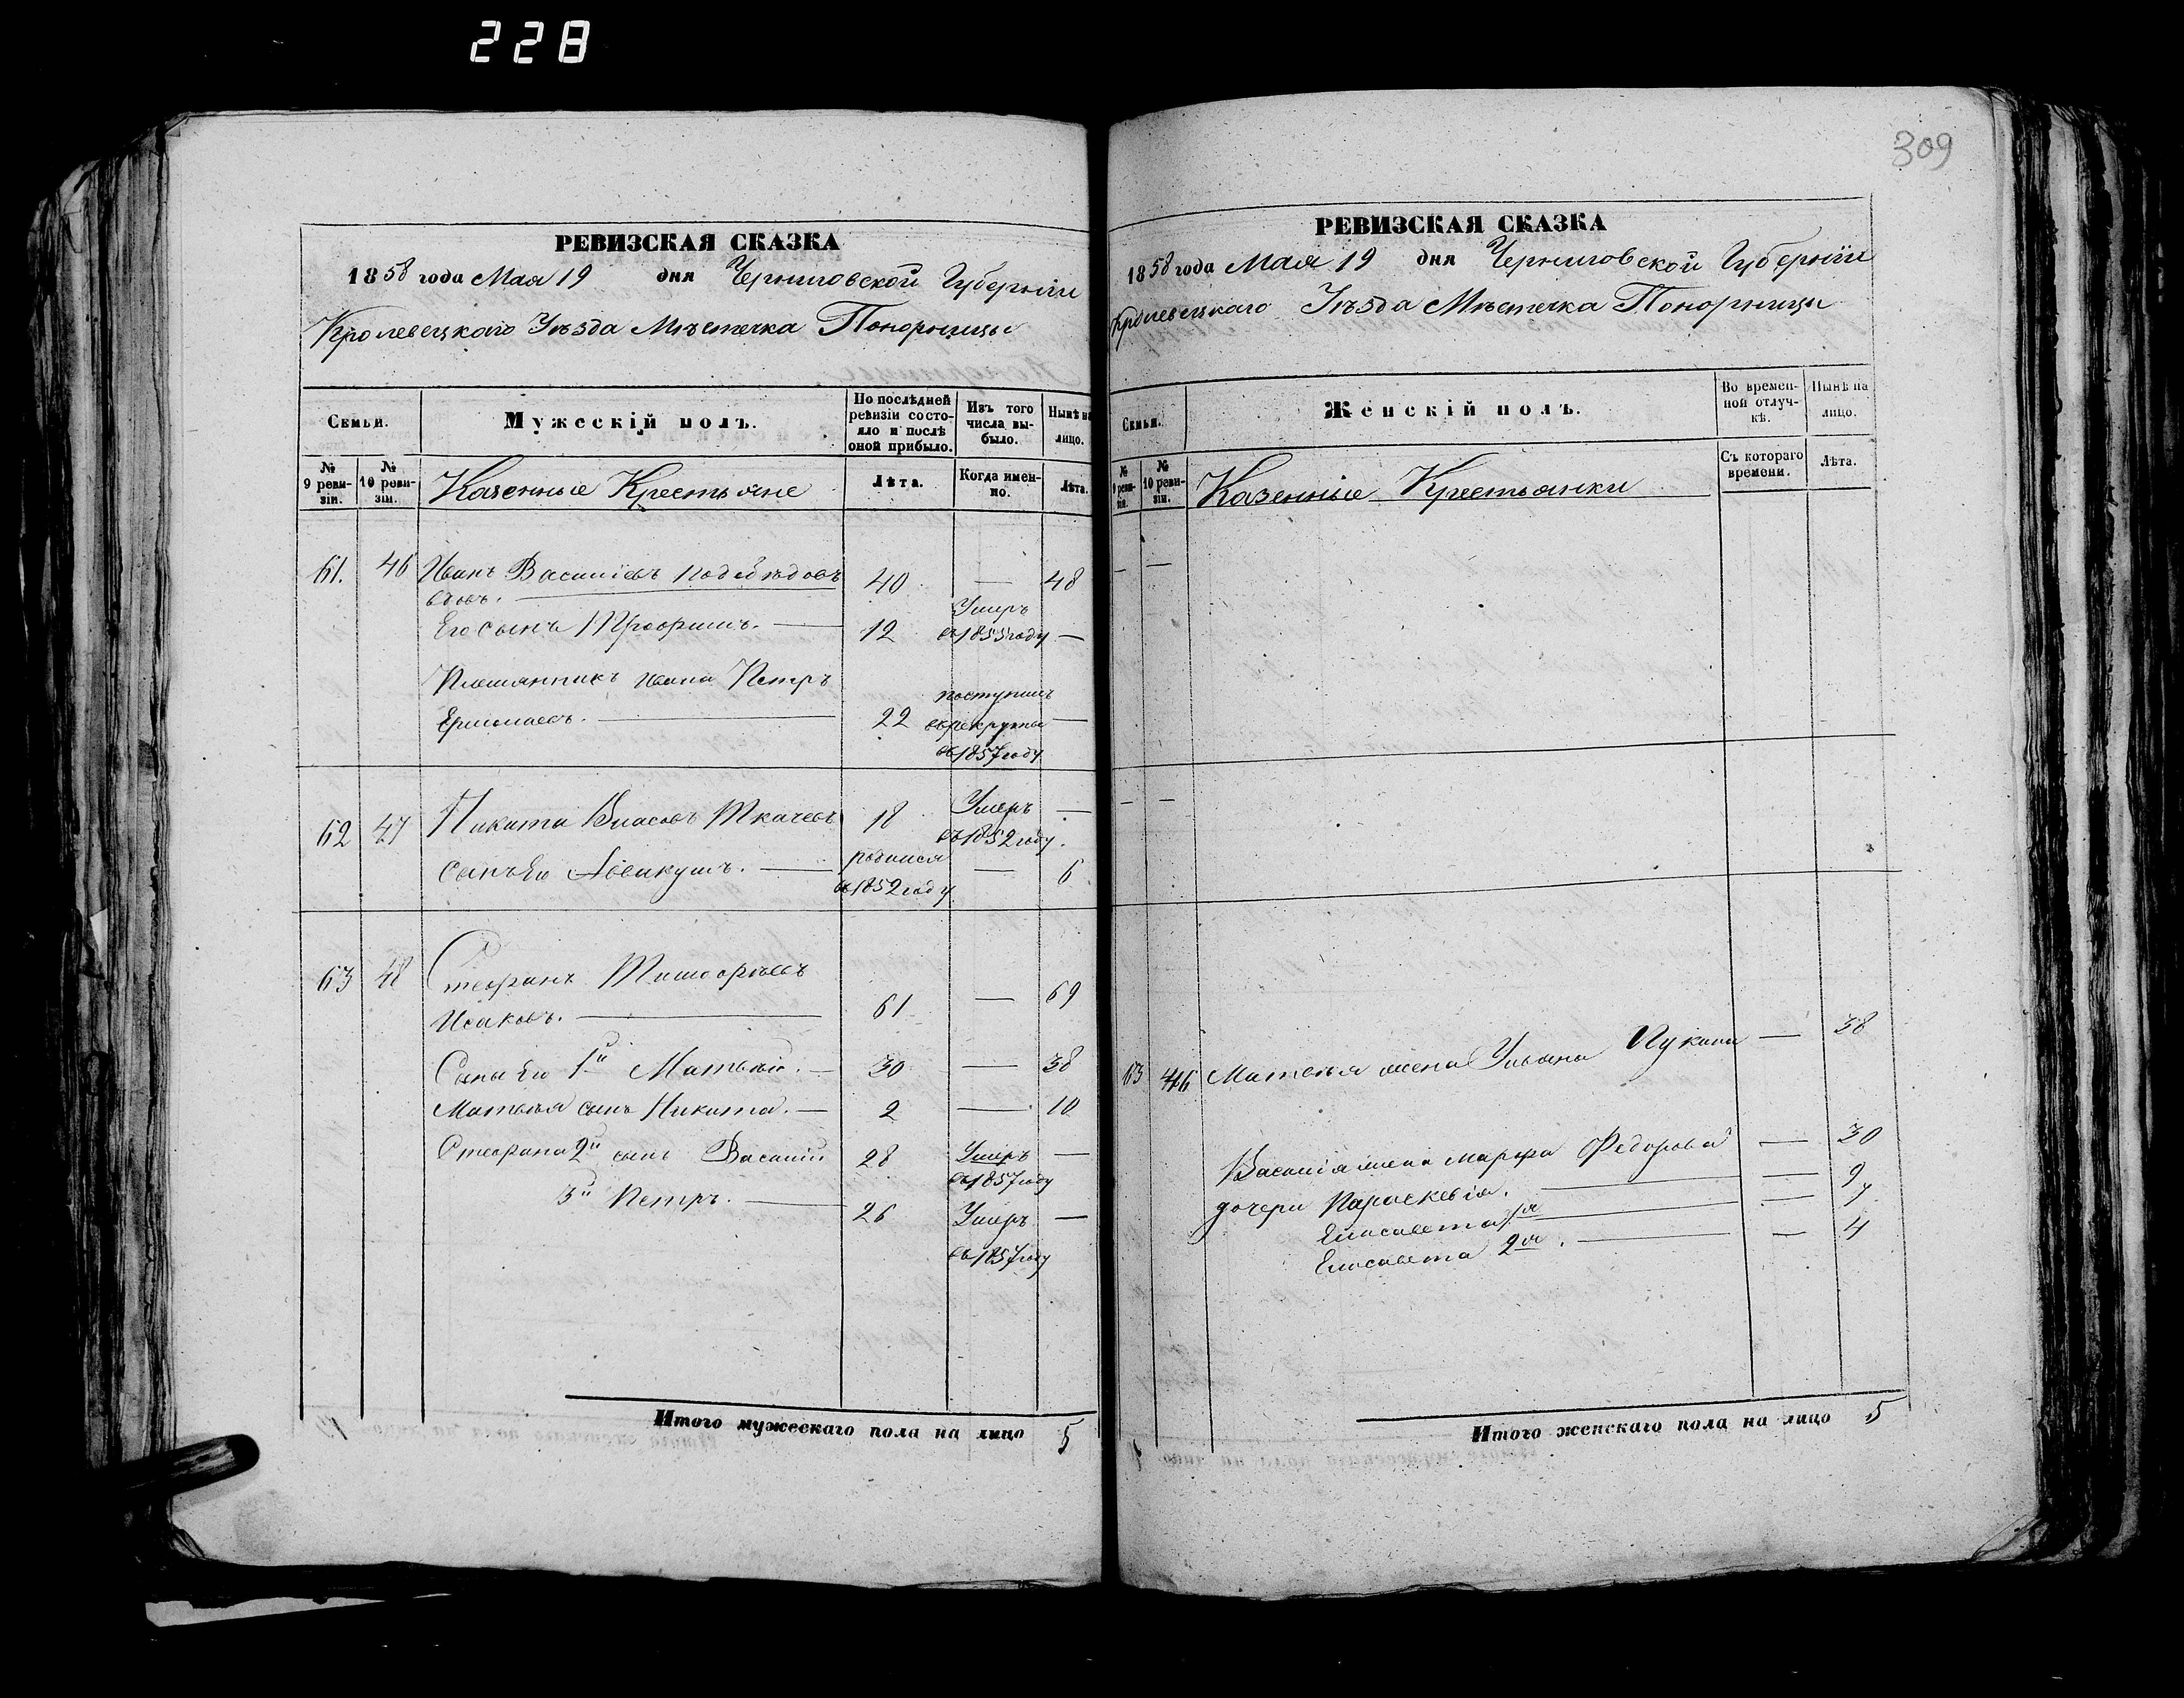 228
309
РЕВИЗСКАЯ СКАЗКА
1858 года Мая 19 дня Черниговской Губерніи
Кролевецкаго Уѣзда Мѣстечка Понорницы
Семьи.
Мужескій полъ.
По послѣдней
ревизіи состо-
яло и послѣ
оной прибыло.
Изъ того
числа вы-
было.
Нынѣ на
лицо.
№
9 реви-
зіи.
№
10 реви-
зіи.
Казенные Крестьяне
Лѣта.
Когда имен-
но.
Лѣта.
61. 46 Иванъ Васильевъ 40 — 48
Его сынъ Трофимъ. — 12 Умеръ въ 1855 году —
Племянникъ Ивана Петръ
Ермолаевъ. — 22 поступилъ в рекруты въ 1857 году —
62 47 Никита Власовъ Ткачевъ 18 Умеръ въ 1852 году. —
Сынъ Его Аввакумъ. — родился въ 1852 году — 6
63 48 Стефанъ Тимофѣевъ
Исаковъ. — 61 — 69
Сыны Его 1й Матвѣй. — 30 — 38
Матвѣя сынъ Никита. — 2 — 10
Стефана 2й сынъ Василій 28 Умеръ въ 1857 году —
3й Петръ. — 26 Умеръ въ 1857 году —
Итого мужескаго пола на лицо 5
РЕВИЗСКАЯ СКАЗКА
1858 года Мая 19 дня Черниговской Губерніи
Кролевецкаго Уѣзда Мѣстечка Понорницы
Семьи.
Женскій полъ.
Во времен-
ной отлуч-
кѣ.
Нынѣ на
лицо.
№
9 реви-
зіи.
№
10 реви-
зіи.
Казенніе Крестьянки
Съ котораго
времени.
Лѣта.
— —
— —
63 46 Матвѣя жена Ульяна — 38
Василія жена Марфа Федорова — 30
дочери Параскевія. — — 9
Елисавета 1я — — 7
Елисавета 2я. — — 4
Итого женскаго пола на лицо 5